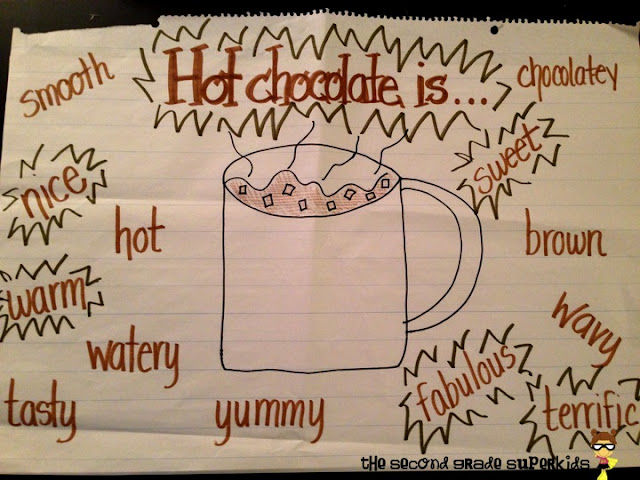 Hot chocolate is...
smooth
chocolatey
nice
sweet
hot
brown
warm
wavy
watery
fabulous
tasty
yummy
terrific
the second grade superkids